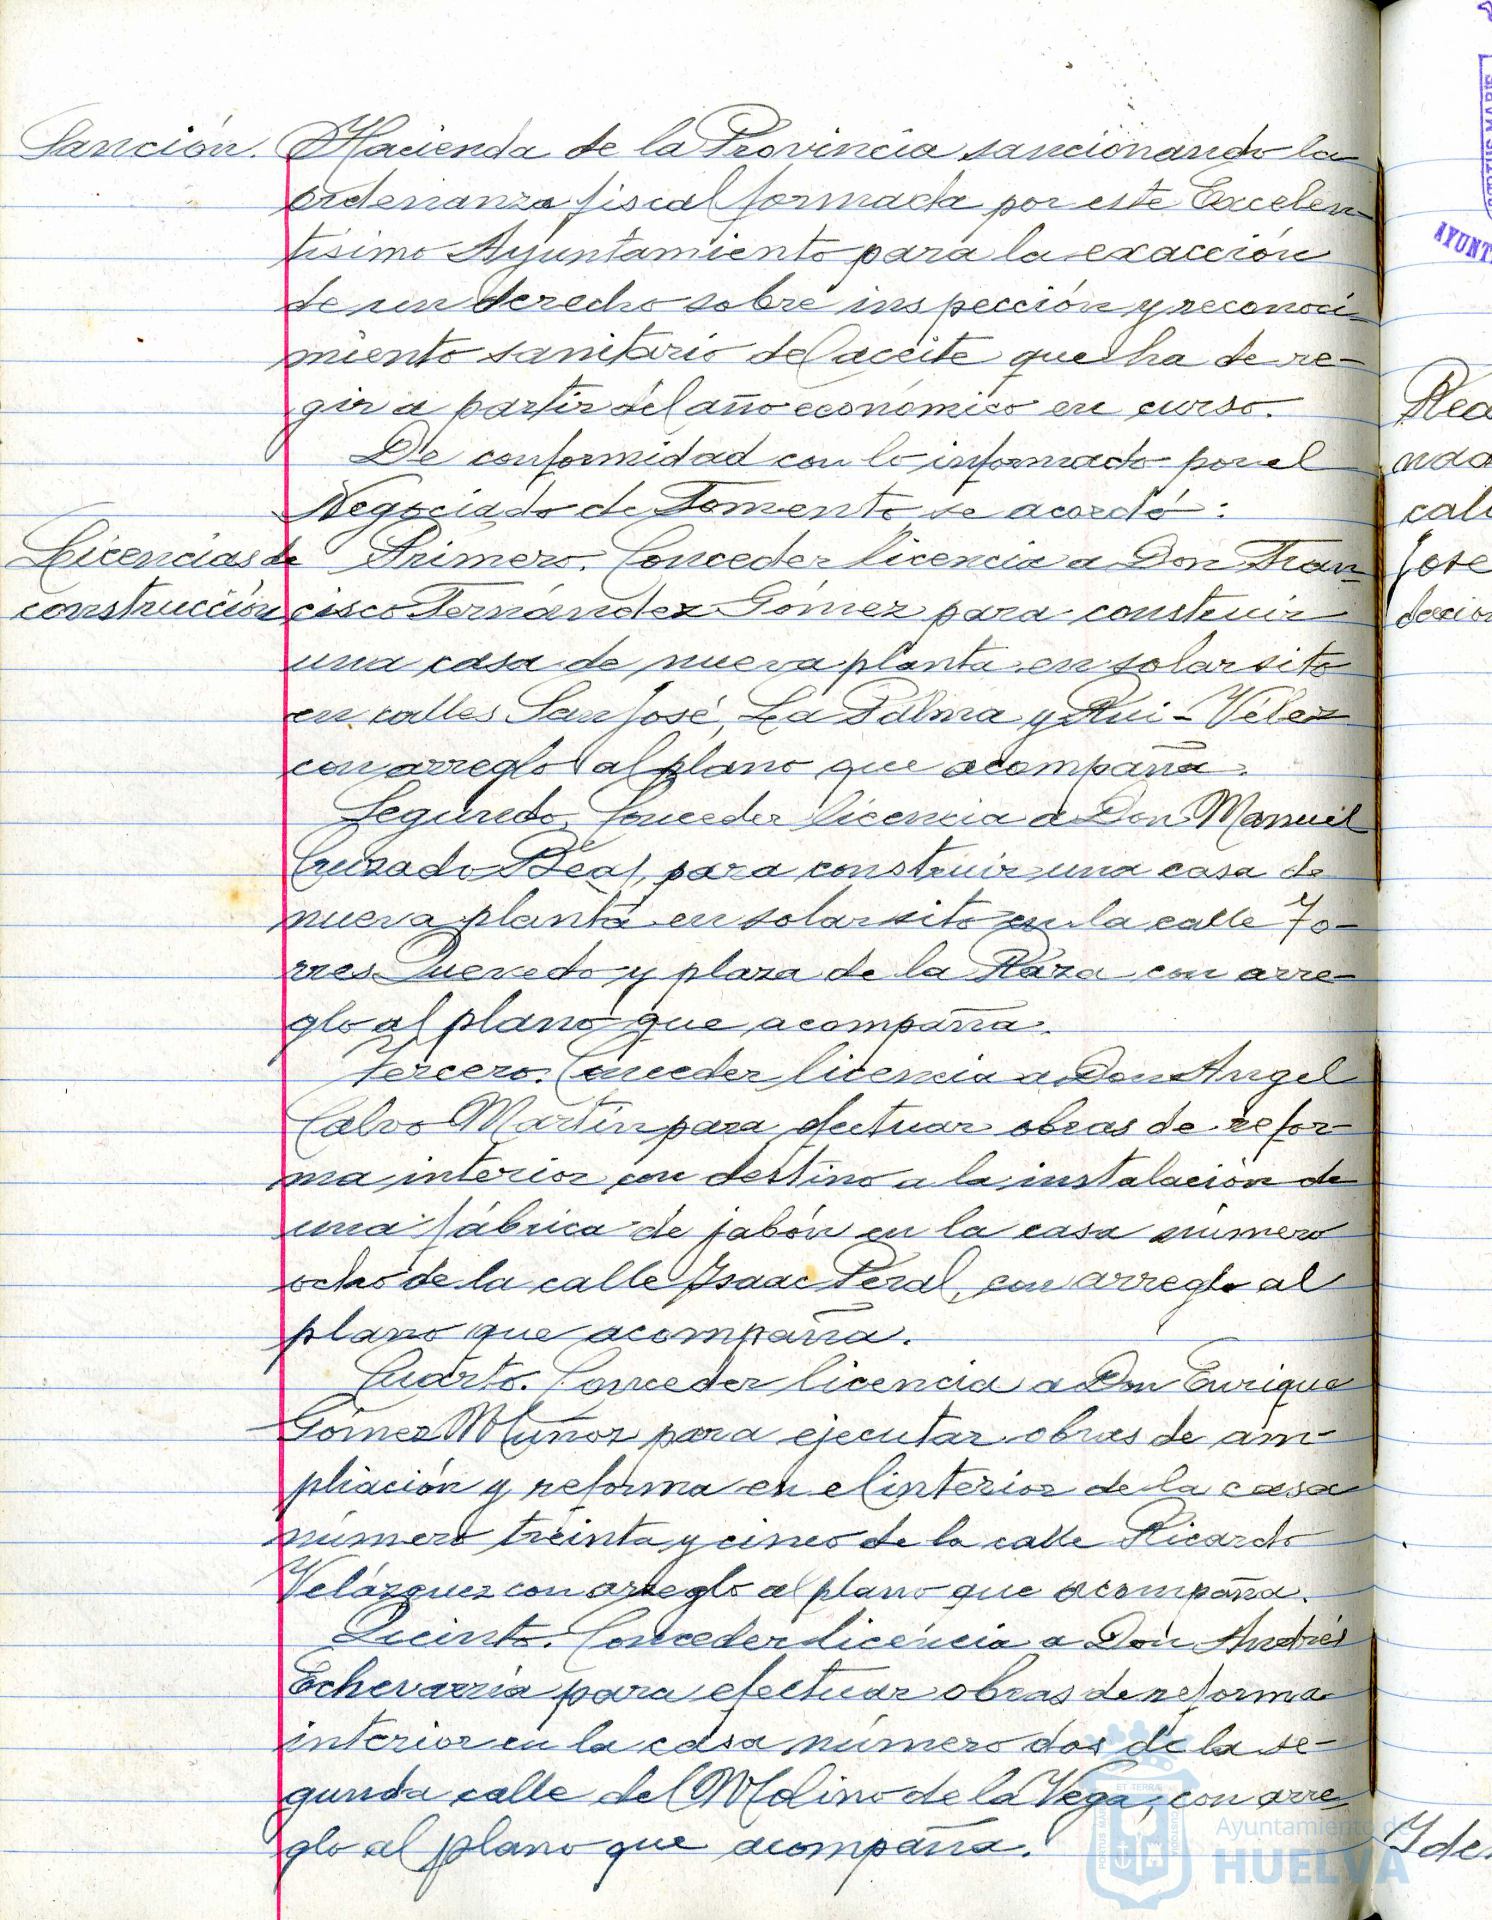 Sanción. Hacienda de la Provincia sancionando la
ordenanza fiscal formada por este Excelen-
tísimo Ayuntamiento para la exacción
de un derecho sobre inspección y reconoci-
miento sanitario del aceite que ha de re-
gir a partir del año económico en curso.
De conformidad con lo informado por el
Negociado de Fomento se acordó:
Licencias de construcción
Primero. Conceder licencia a Don Fran-
cisco Fernández Gómez para construir
una casa de nueva planta en solar sito
en calles San José, La Palma y Rui-Vélez
con arreglo al plano que acompaña.
Segundo. Conceder licencia a Don Manuel
Cruzado Real, para construir una casa de
nueva planta en solar sito en la calle To-
rres Quevedo y plaza de la Raza con arre-
glo al plano que acompaña.
Tercero. Conceder licencia a Don Angel
Calvo Martín para efectuar obras de refor-
ma interior con destino a la instalación de
una fábrica de jabón en la casa número
ocho de la calle Isaac Peral, con arreglo al
plano que acompaña.
Cuarto. Conceder licencia a Don Enrique
Gómez Muñoz para ejecutar obras de am-
pliación y reforma en el interior de la casa
número treinta y cinco de la calle Ricardo
Velázquez con arreglo al plano que acompaña.
Quinto. Conceder licencia a Don Andrés
Echevarría para efectuar obras de reforma
interior en la casa número dos de la se-
gunda calle del Molino de la Vega, con arre-
glo al plano que acompaña.
Ayuntamiento de
HUELVA